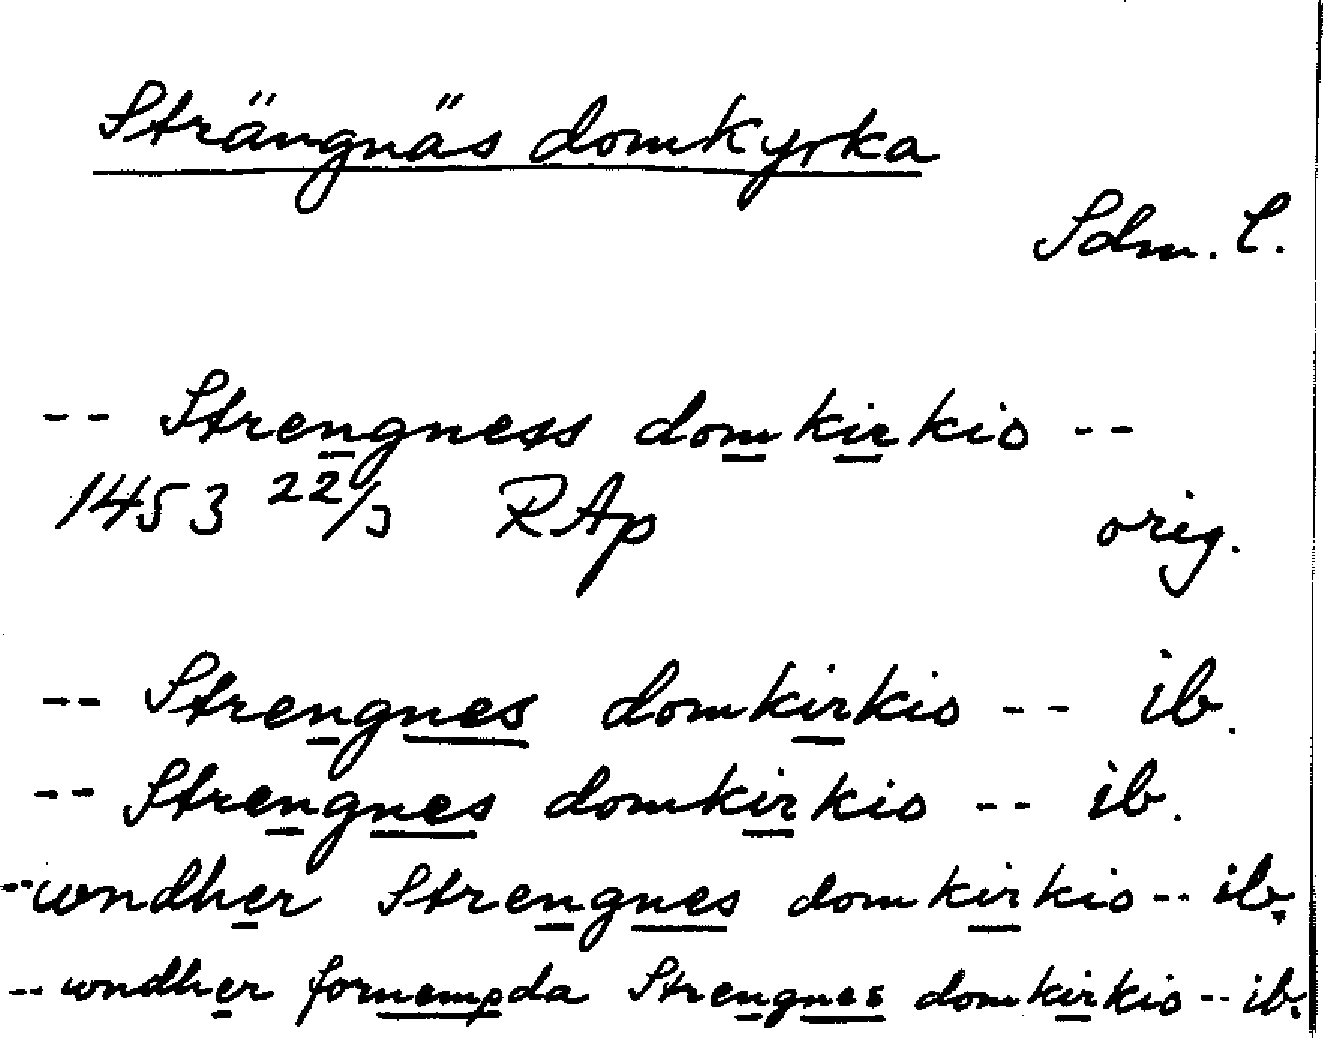 Strängnäs domkyrka
Sdm. l.
-- Strengness domkirkio --
1453 22/3 RAp orig.
-- Strengnes domkirkio -- ib.
-- Strengnes domkirkio -- ib.
-- wndher Strengnes domkirkio -- ib.
-- wndher fornempda Strengnes domkirkio -- ib.